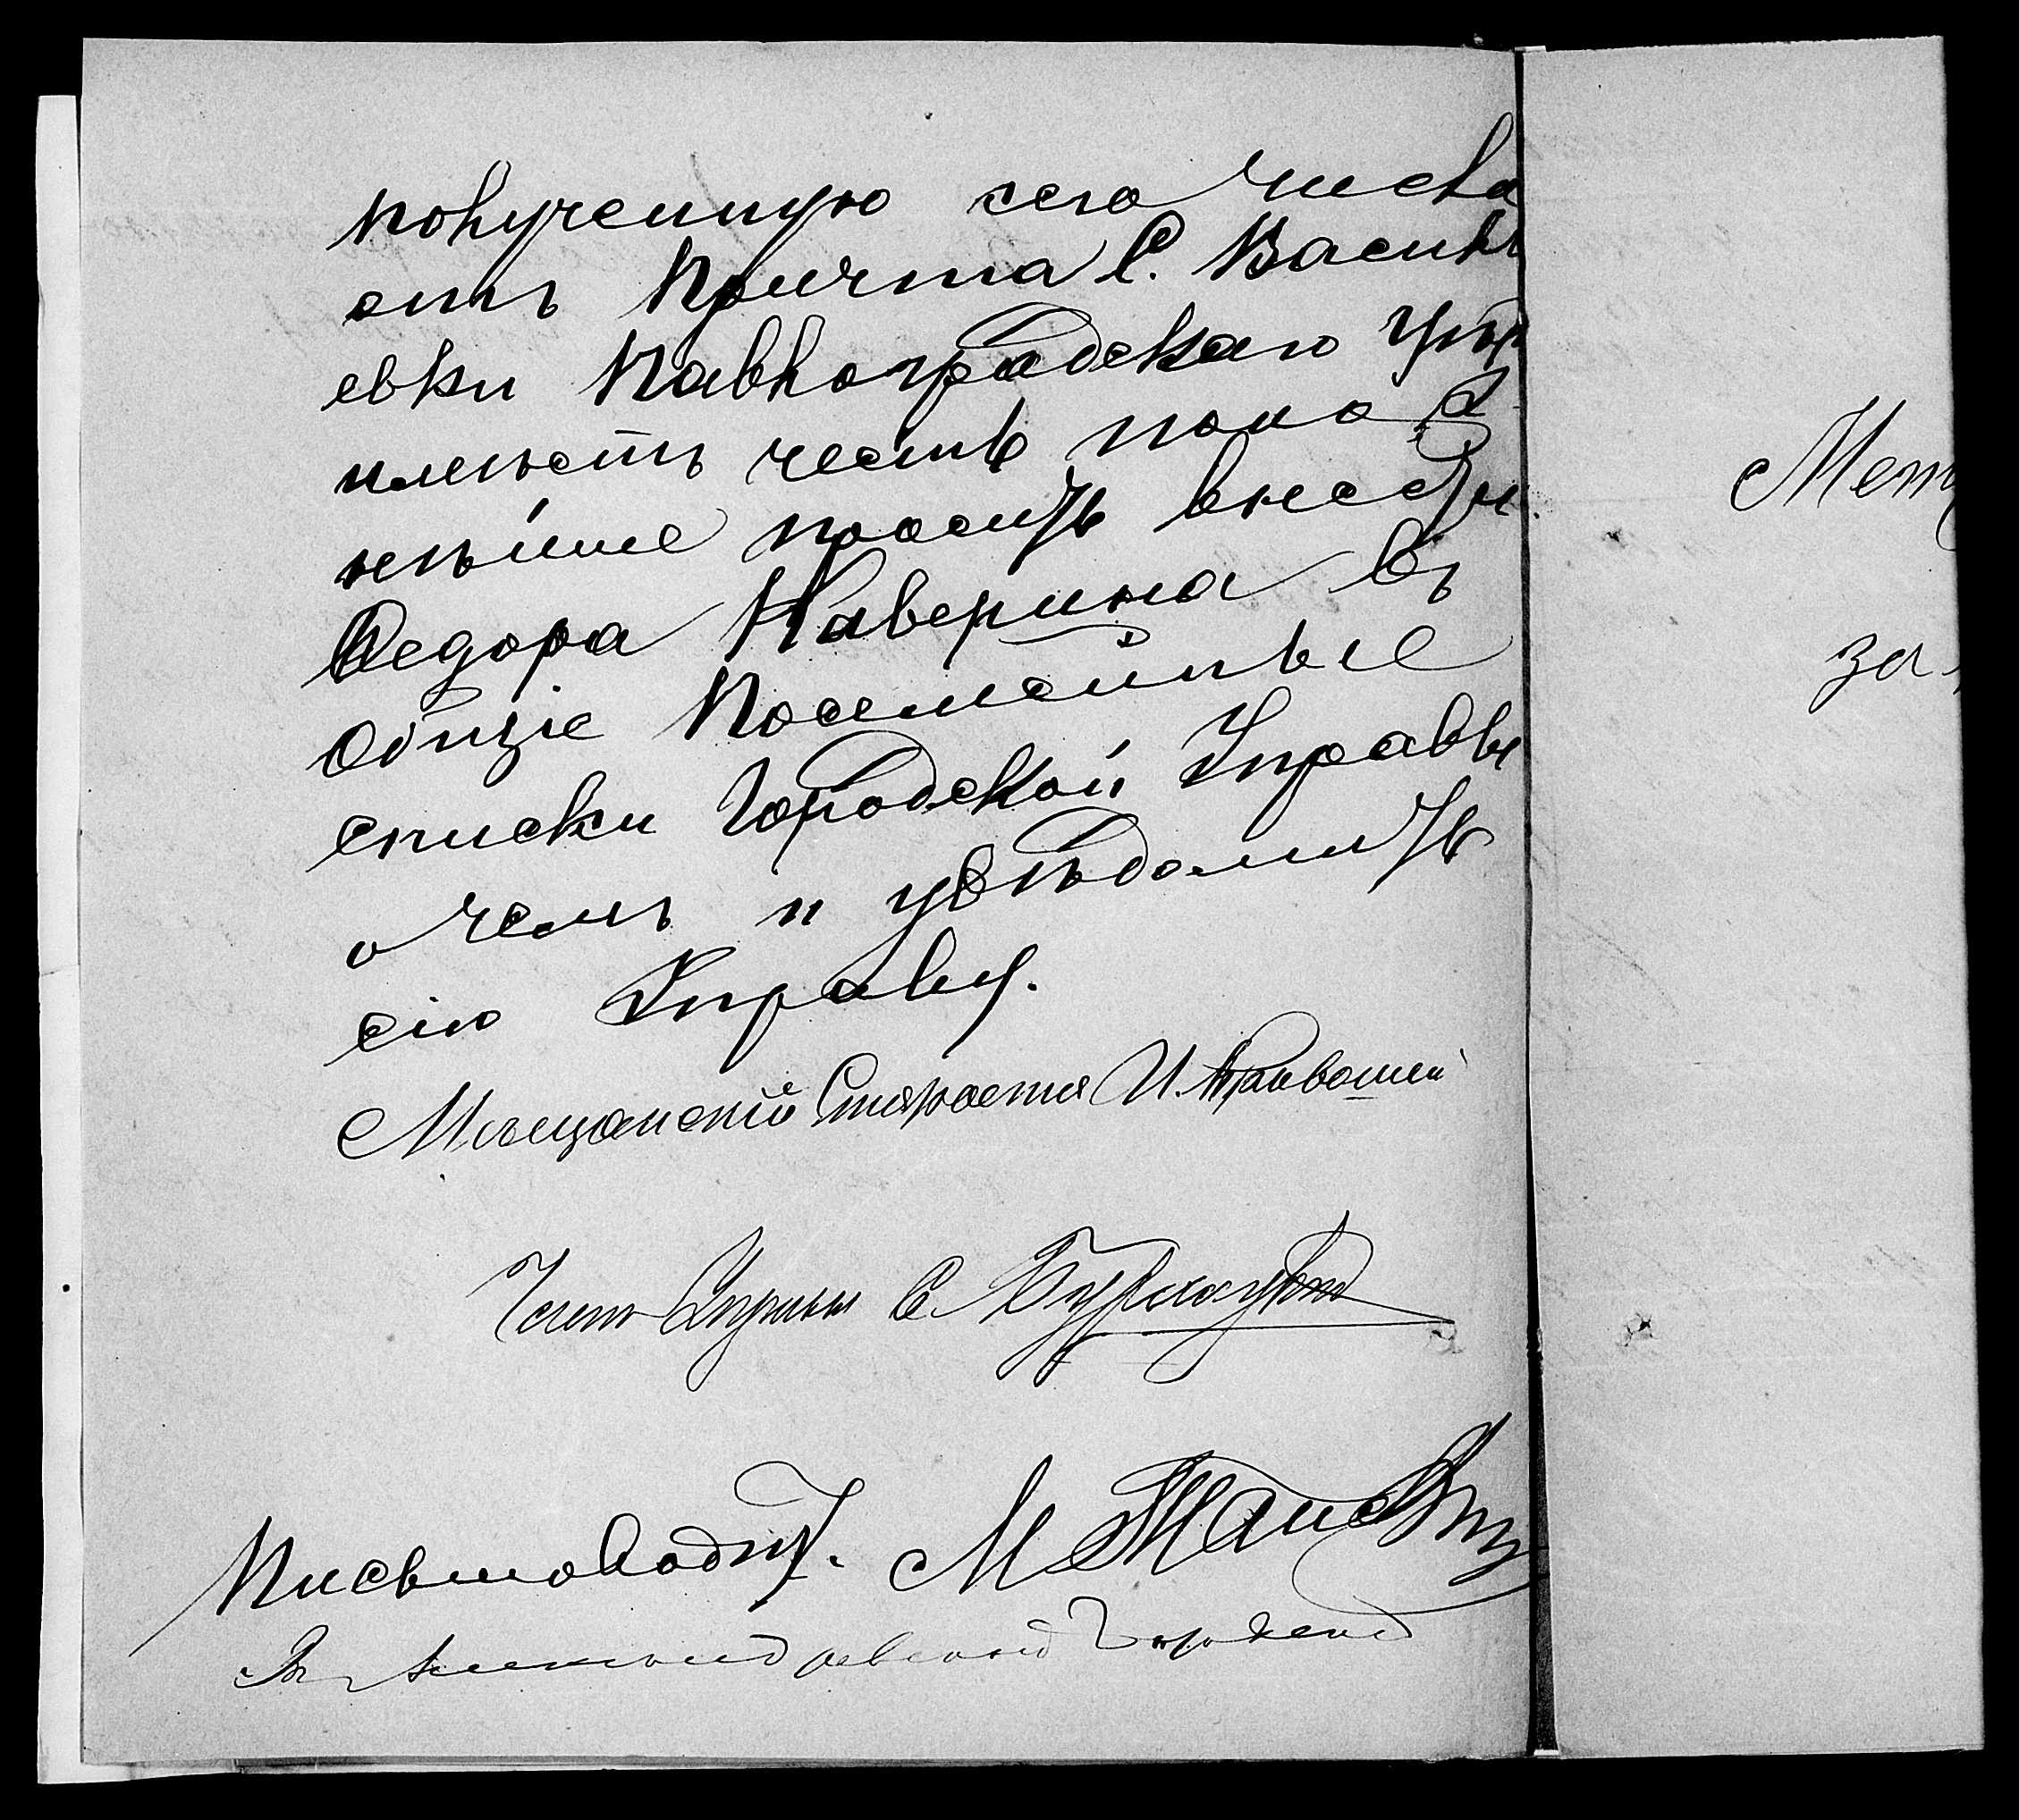 полученную сего числа
отъ Причта С. Василь
евки Павлоградскаго уѣз
имѣетъ честь покор
нѣйше просить внести
Федора Каверина въ
общіе посемейные
списки Городской Управы
о чемъ и увѣдомить
сію Управу.
Мѣщанскій Староста И. Кривошей
Член Управы С.
Письмоводит. М
Въ Александровской Городской
Мет
за